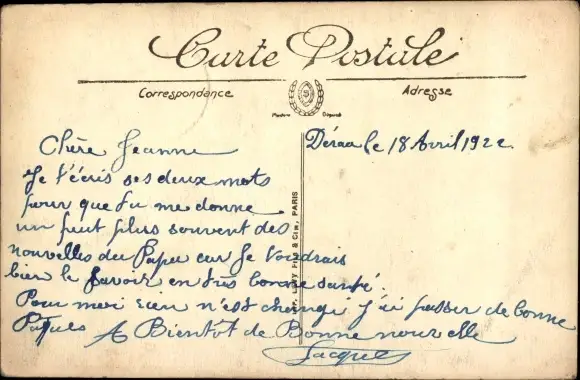 Carte Postale
Correspondance
Adresse
Modèle Déposé
Chère Jeanne
Déraa le 18 Avril 1922
Je t'écris ses deux mots
pour que tu me donne
un peut plus souvent des
nouvelles du Papa car Je voudrais
bien le savoir en très bonne santé.
Pour moi rien n'est changé j'ai passer de bonne
Pâques A Bientôt de Bonne nouvelle
Jacques
LEVY FILS & Cie, PARIS